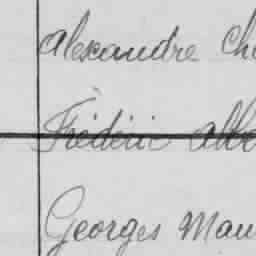 Alexandre Ch
Frédéric Alb
Georges Mau